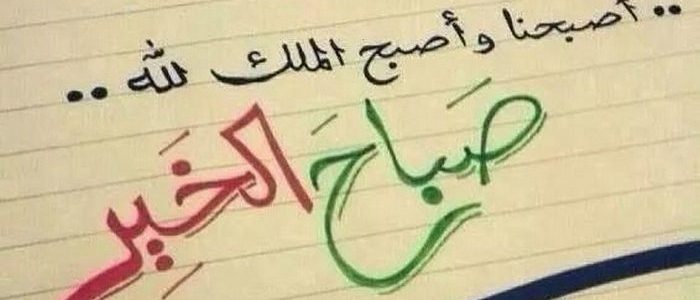 .. أصبحنا وأصبح الملك لله ..
صَباحَ الخَير